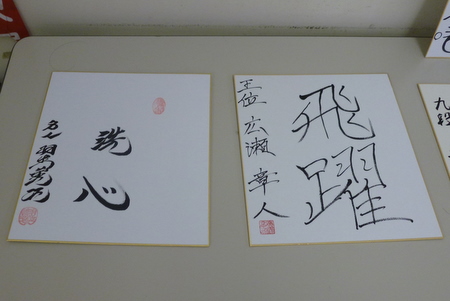 洗心
名人 羽生善治
飛躍
王位 広瀬章人
九段